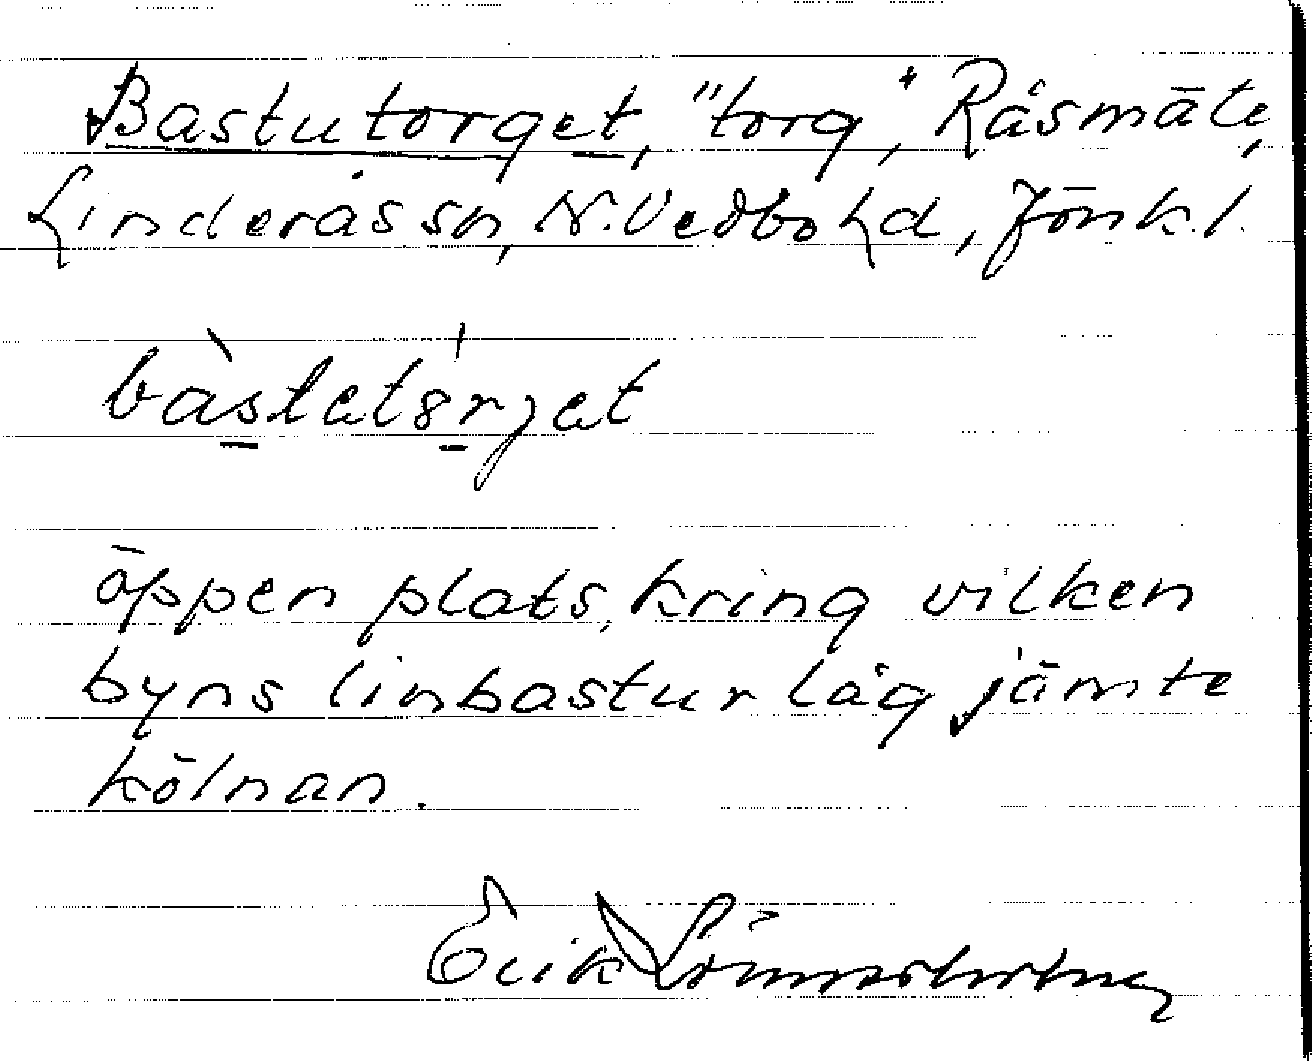 Bastutorget, "torg", Råsmäte,
Linderås sn, N. Vedbo hd, Jönk. l.
bàstetȣrjet
öppen plats, kring vilken
byns linbastur låg jämte
kölnan.
Erik